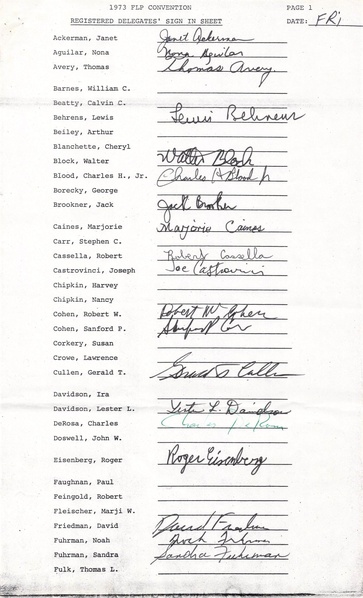 1973 FLP CONVENTION PAGE 1
REGISTERED DELEGATES' SIGN IN SHEET DATE: FRI
Ackerman, Janet Janet Ackerman
Aguilar, Nona Nona Aguilar
Avery, Thomas Thomas Avery
Barnes, William C.
Beatty, Calvin C.
Behrens, Lewis Lewis Behrens
Beiley, Arthur
Blanchette, Cheryl
Block, Walter Walter Block
Blood, Charles H., Jr. Charles H Blood Jr
Borecky, George
Brookner, Jack Jack Brookner
Caines, Marjorie Marjorie Caines
Carr, Stephen C.
Cassella, Robert Robert Cassella
Castrovinci, Joseph Joe Castrovinci
Chipkin, Harvey
Chipkin, Nancy
Cohen, Robert W. Robert W. Cohen
Cohen, Sanford P. Sanford P. Cohen
Corkery, Susan
Crowe, Lawrence
Cullen, Gerald T. Gerald T Cullen
Davidson, Ira
Davidson, Lester L. Lester L. Davidson
DeRosa, Charles Charles DeRosa
Doswell, John W.
Eisenberg, Roger Roger Eisenberg
Faughnan, Paul
Feingold, Robert
Fleischer, Marji W.
Friedman, David David Friedman
Fuhrman, Noah Noah Fuhrman
Fuhrman, Sandra Sandra Fuhrman
Fulk, Thomas L.